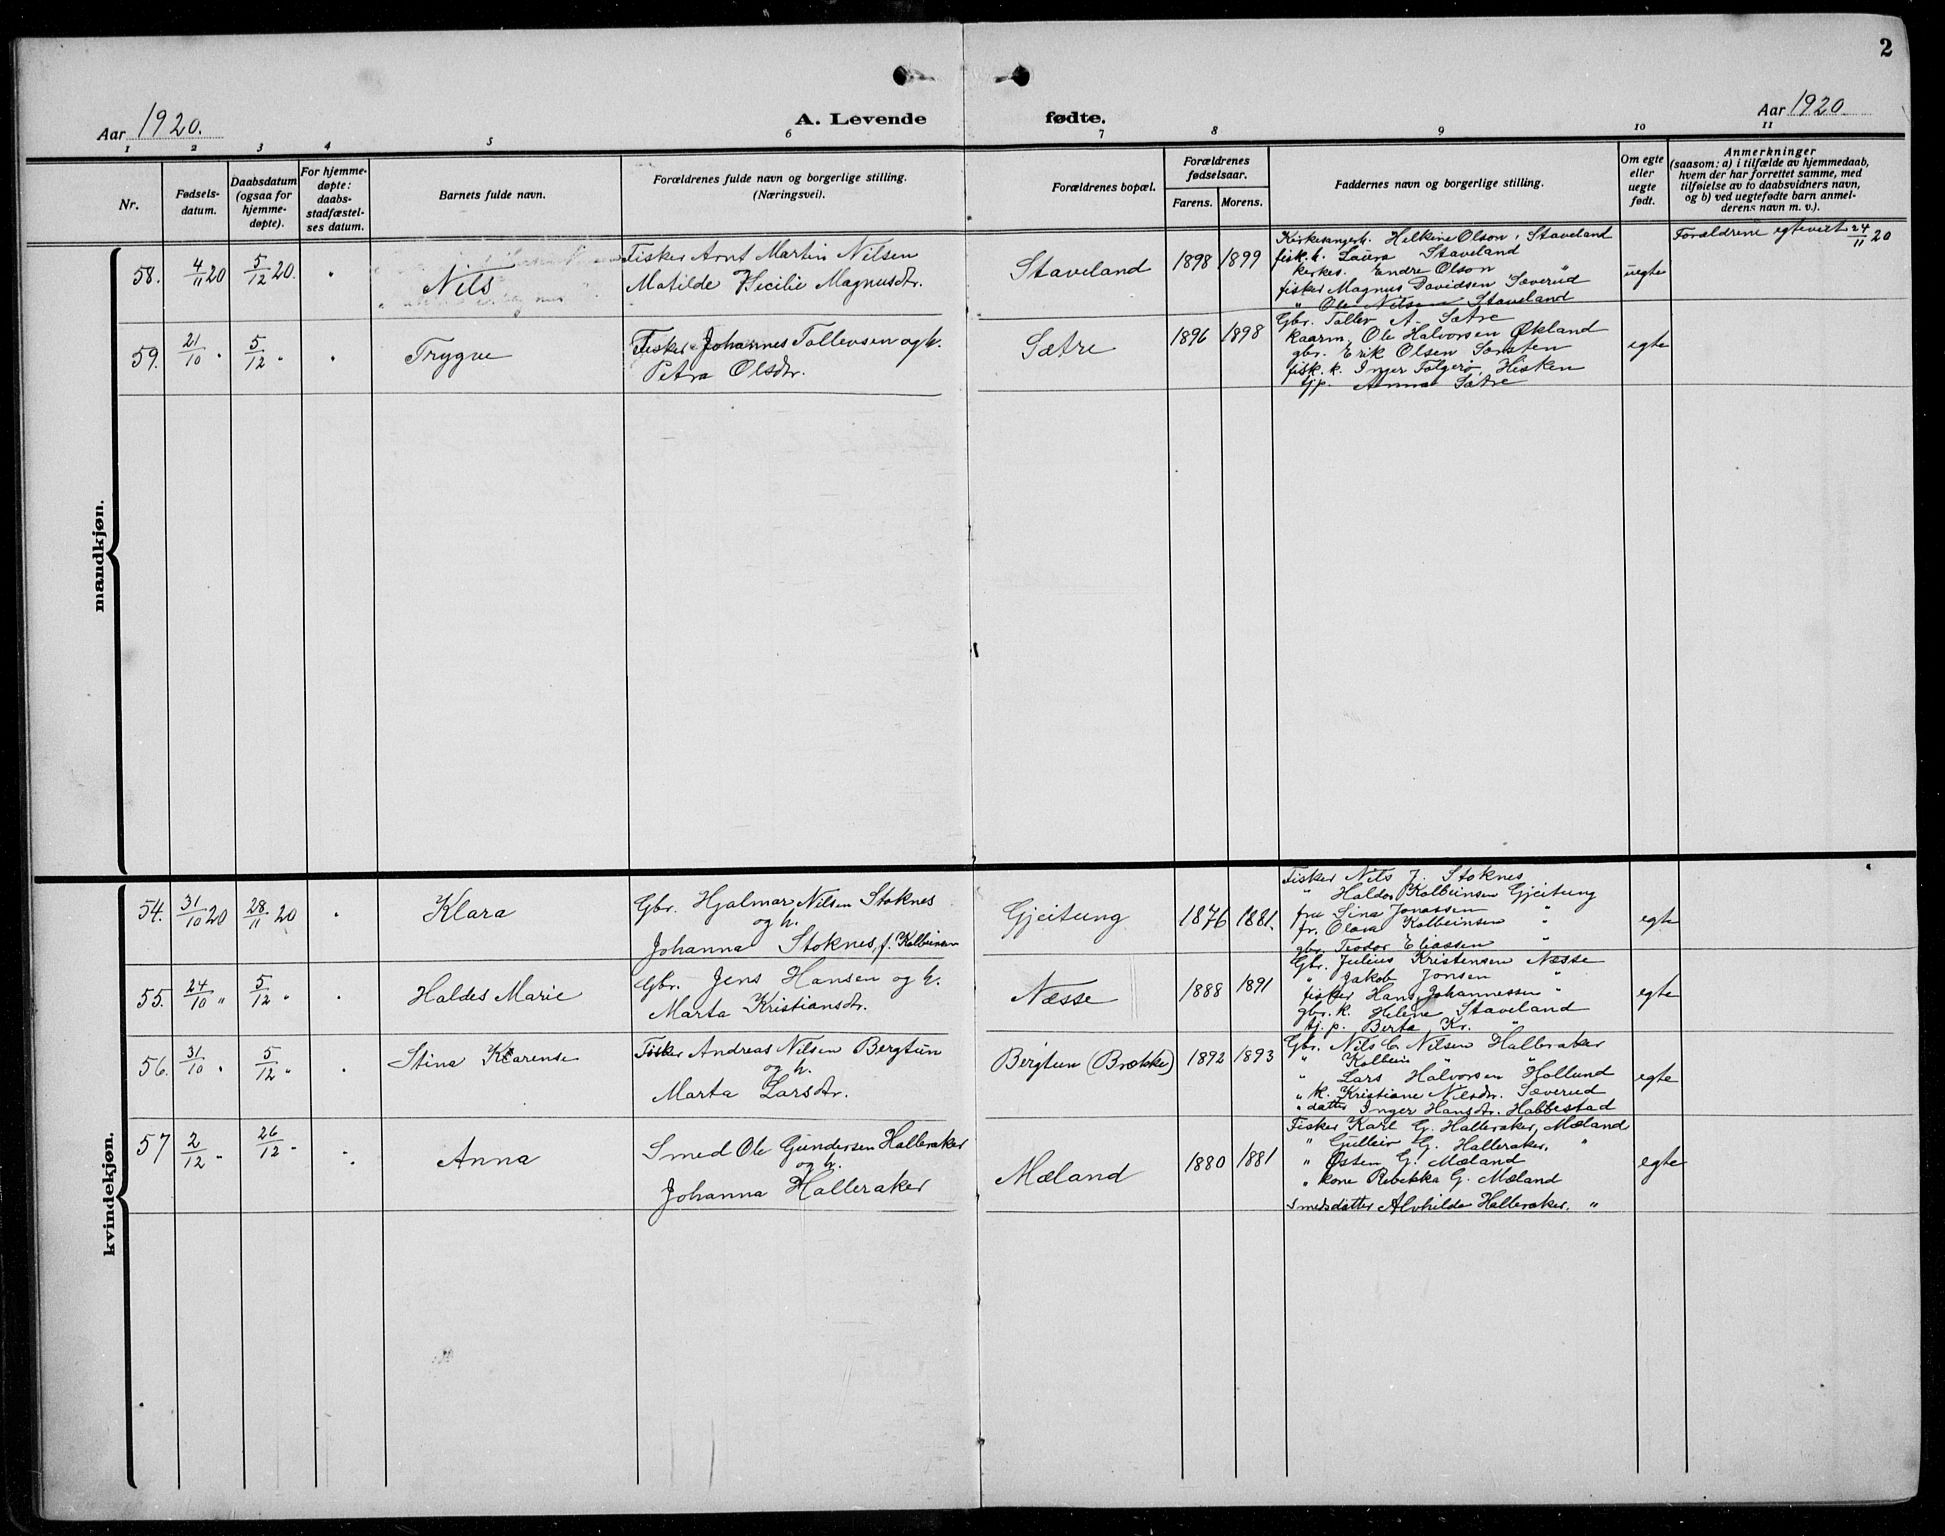 2
Aar 1920.
A. Levende fødte.
Aar 1920
1 2 3 4 5 6 7 8 9 10 11
Nr.
Fødsels-
datum.
Daabsdatum
(ogsaa for
hjemme-
døpte).
For hjemme-
døpte:
daabs-
stadfæstel-
ses datum.
Barnets fulde navn.
Forældrenes fulde navn og borgerlige stilling.
(Næringsvei).
Forældrenes bopæl.
Forældrenes
fødselsaar.
Farens. Morens.
Faddernes navn og borgerlige stilling.
Om egte
eller
uegte
født.
Anmerkninger
(saasom: a) i tilfælde av hjemmedaab,
hvem der har forrettet samme, med
tilføielse av to daabsvidners navn,
og b) ved uegtefødte barn anmel-
derens navn m. v.).
mandkjøn.
58. 4/11 20 5/12 20. " Nils
Fisker Arnt Martin Nilsen
Matilde Cecilie Magnusdtr.
Staveland 1898 1899
Kirkesanger Helkine Olson, Staveland
fisk. k. Laura Staveland
kirkes. Endre Olson "
fisker Magnus Davidsen Sæverud
" Ole Nilsen Staveland
uegte
Forældrene egteviet 24/11 20
59. 21/10 " 5/12 " " Trygve
Fisker Johannes Tollevsen og h.
Petra Olsdtr.
Sætre 1896 1898
Gbr. Tollev A. Sætre
kaarm. Ole Halvorsen Økland
gbr. Erik Olsen
fisk. k. Inger Folgerø, Hisken
tjp. Anna Sætre
egte
kvindekjøn.
54. 31/10 20 28/11 20 " Klara
Gbr. Hjalmar Nilsen Stoknes
og h.
Johanna Stoknes f. Kolbeinsen
Gjeitung 1876 1881.
Fisker Nils J. Stoknes
" Haldor Kolbeinsen Gjeitung
fru Sina Jonassen "
fr. Olava Kolbeinsen "
gbr. Teodor Eliassen "
egte
55. 24/10 " 5/12 " " Haldis Marie
Gbr. Jens Hansen og h.
Marta Kristiansdtr.
Næsse 1888 1891
Gbr. Julius Kristensen Næsse
" Jakob Jonsen "
fisker Hans Johannessen "
gbr. k. Helene Staveland
tj. p. Berta Kr. "
egte
56. 31/10 " 5/12 " " Stina Klarense
Fisker Andreas Nilsen Bergtun
og h.
Marta Larsdtr.
Bergtun (Brække) 1892 1893
Gbr. Nils C. Nilsen Halleraker
" Kolbein " "
" Lars Halvorsen Hollund
" k. Kristiane Nilsdtr. Sæverud
" datter Inger Hansdtr. Habbestad
egte
57 2/12 " 26/12 " " Anna
Smed Ole Gundersen Halleraker
og h.
Johanna Halleraker
Mæland 1880 1881
Fisker Karl G. Halleraker, Mæland
" Gulleiv G. Halleraker, "
" Østen G. Mæland
" kone Rebekka G. Mæland
Smedsdatter Alvhilda Halleraker, "
egte